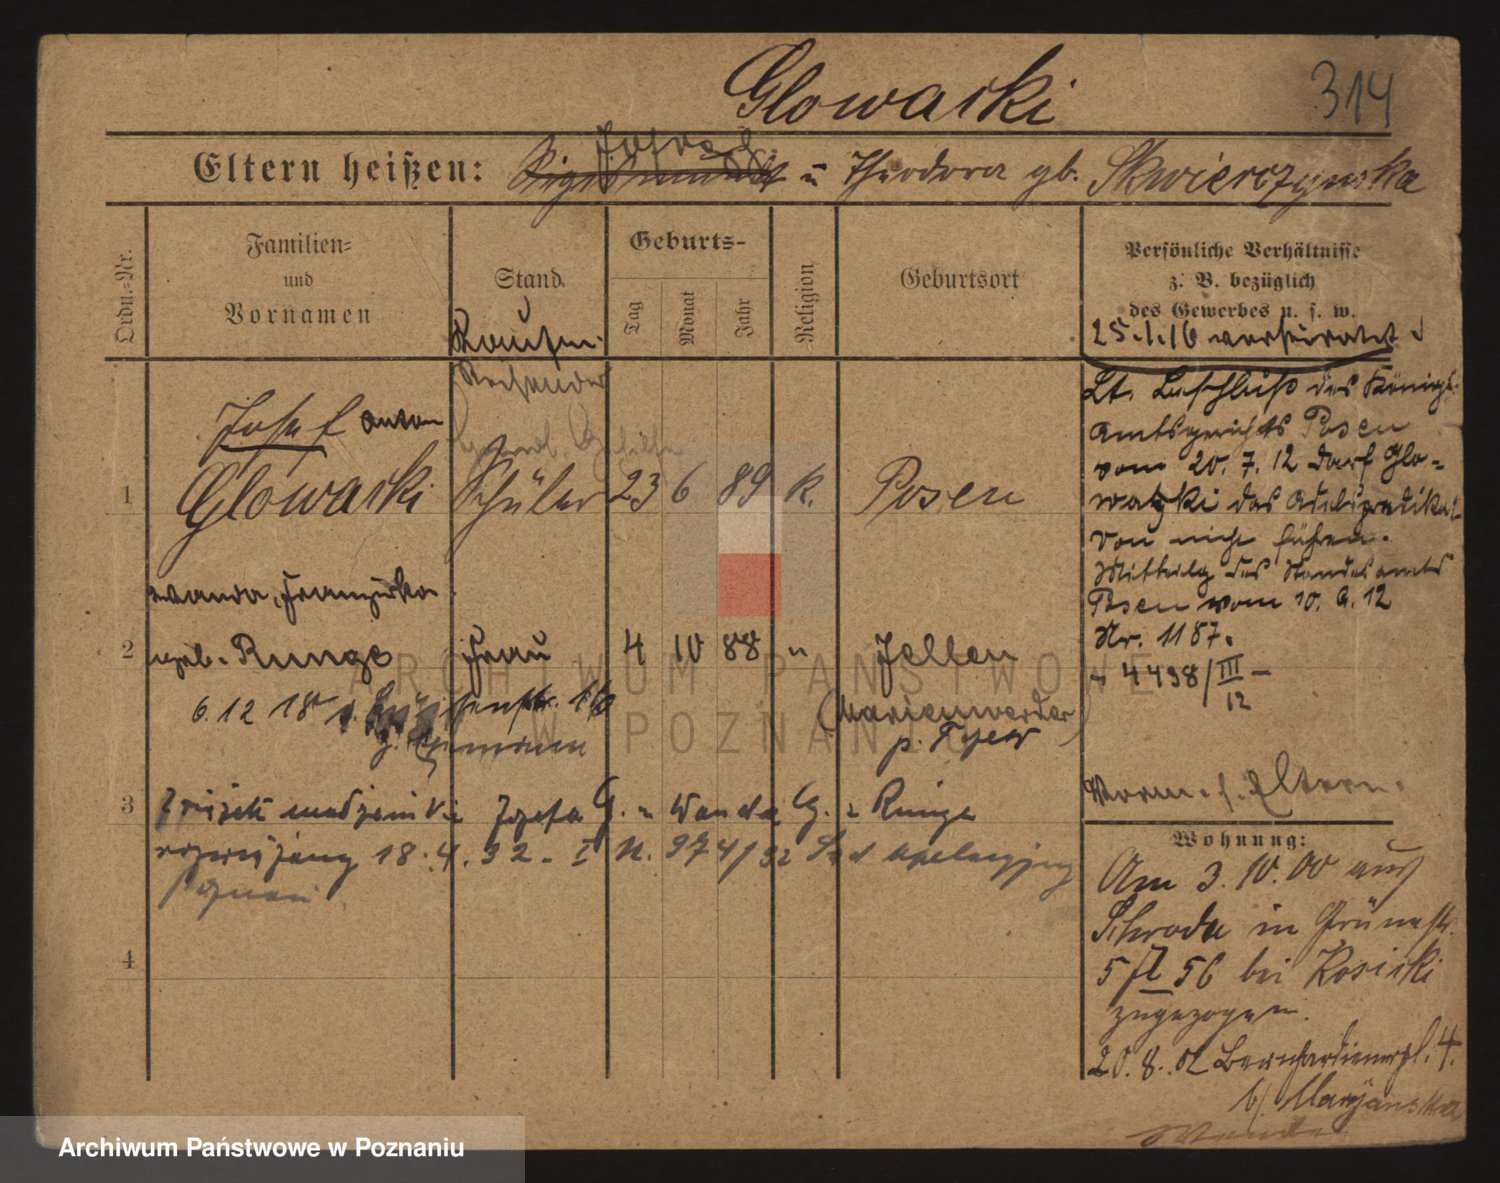 Glowacki
314
Eltern heißen: Sigismund u Theodora gb. Skwierczynska
Josef
Ordn.-Nr.
Familien-
und
Vornamen
Stand
Geburts-
Tag
Monat
Jahr
Religion
Geburtsort
Persönliche Verhältnisse
z. B. bezüglich
des Gewerbes u. s. w.
Kaufm.
25.1.16 verheiratet
Reisender
Lt. Beschluß des Königl.
Amtsgerichts Posen
vom 20.7.12 darf Glo-
watzki das Adelsprädikat
von nicht führen.
Mitteilg des Standesamts
Posen vom 10.9.12
Nr. 1187.
4498/III
12
Josef Anton
1 Glowacki Schüler 23 6 89 k. Posen
Wanda, Franziska
2 geb. Runge Frau 4 10 88 " Jellen
(Marienwerder)
6.12 18
3 Związek małżeński Józefa G. i Wanda G. z Runge
18.4.32 - I N. 974/32 Sąd apelacyjny
Poznań
4
Vorm. s. Eltern.
Wohnung:
Am 3.10.00 aus
Schroda in Grünestr.
5 II 56 bei Kosicki
zugezogen.
20.8.02 Bernhardinerpl. 4.
b/ Maryańska
Wenden
ARCHIWUM PAŃSTWOWE
W POZNANIU
Archiwum Państwowe w Poznaniu